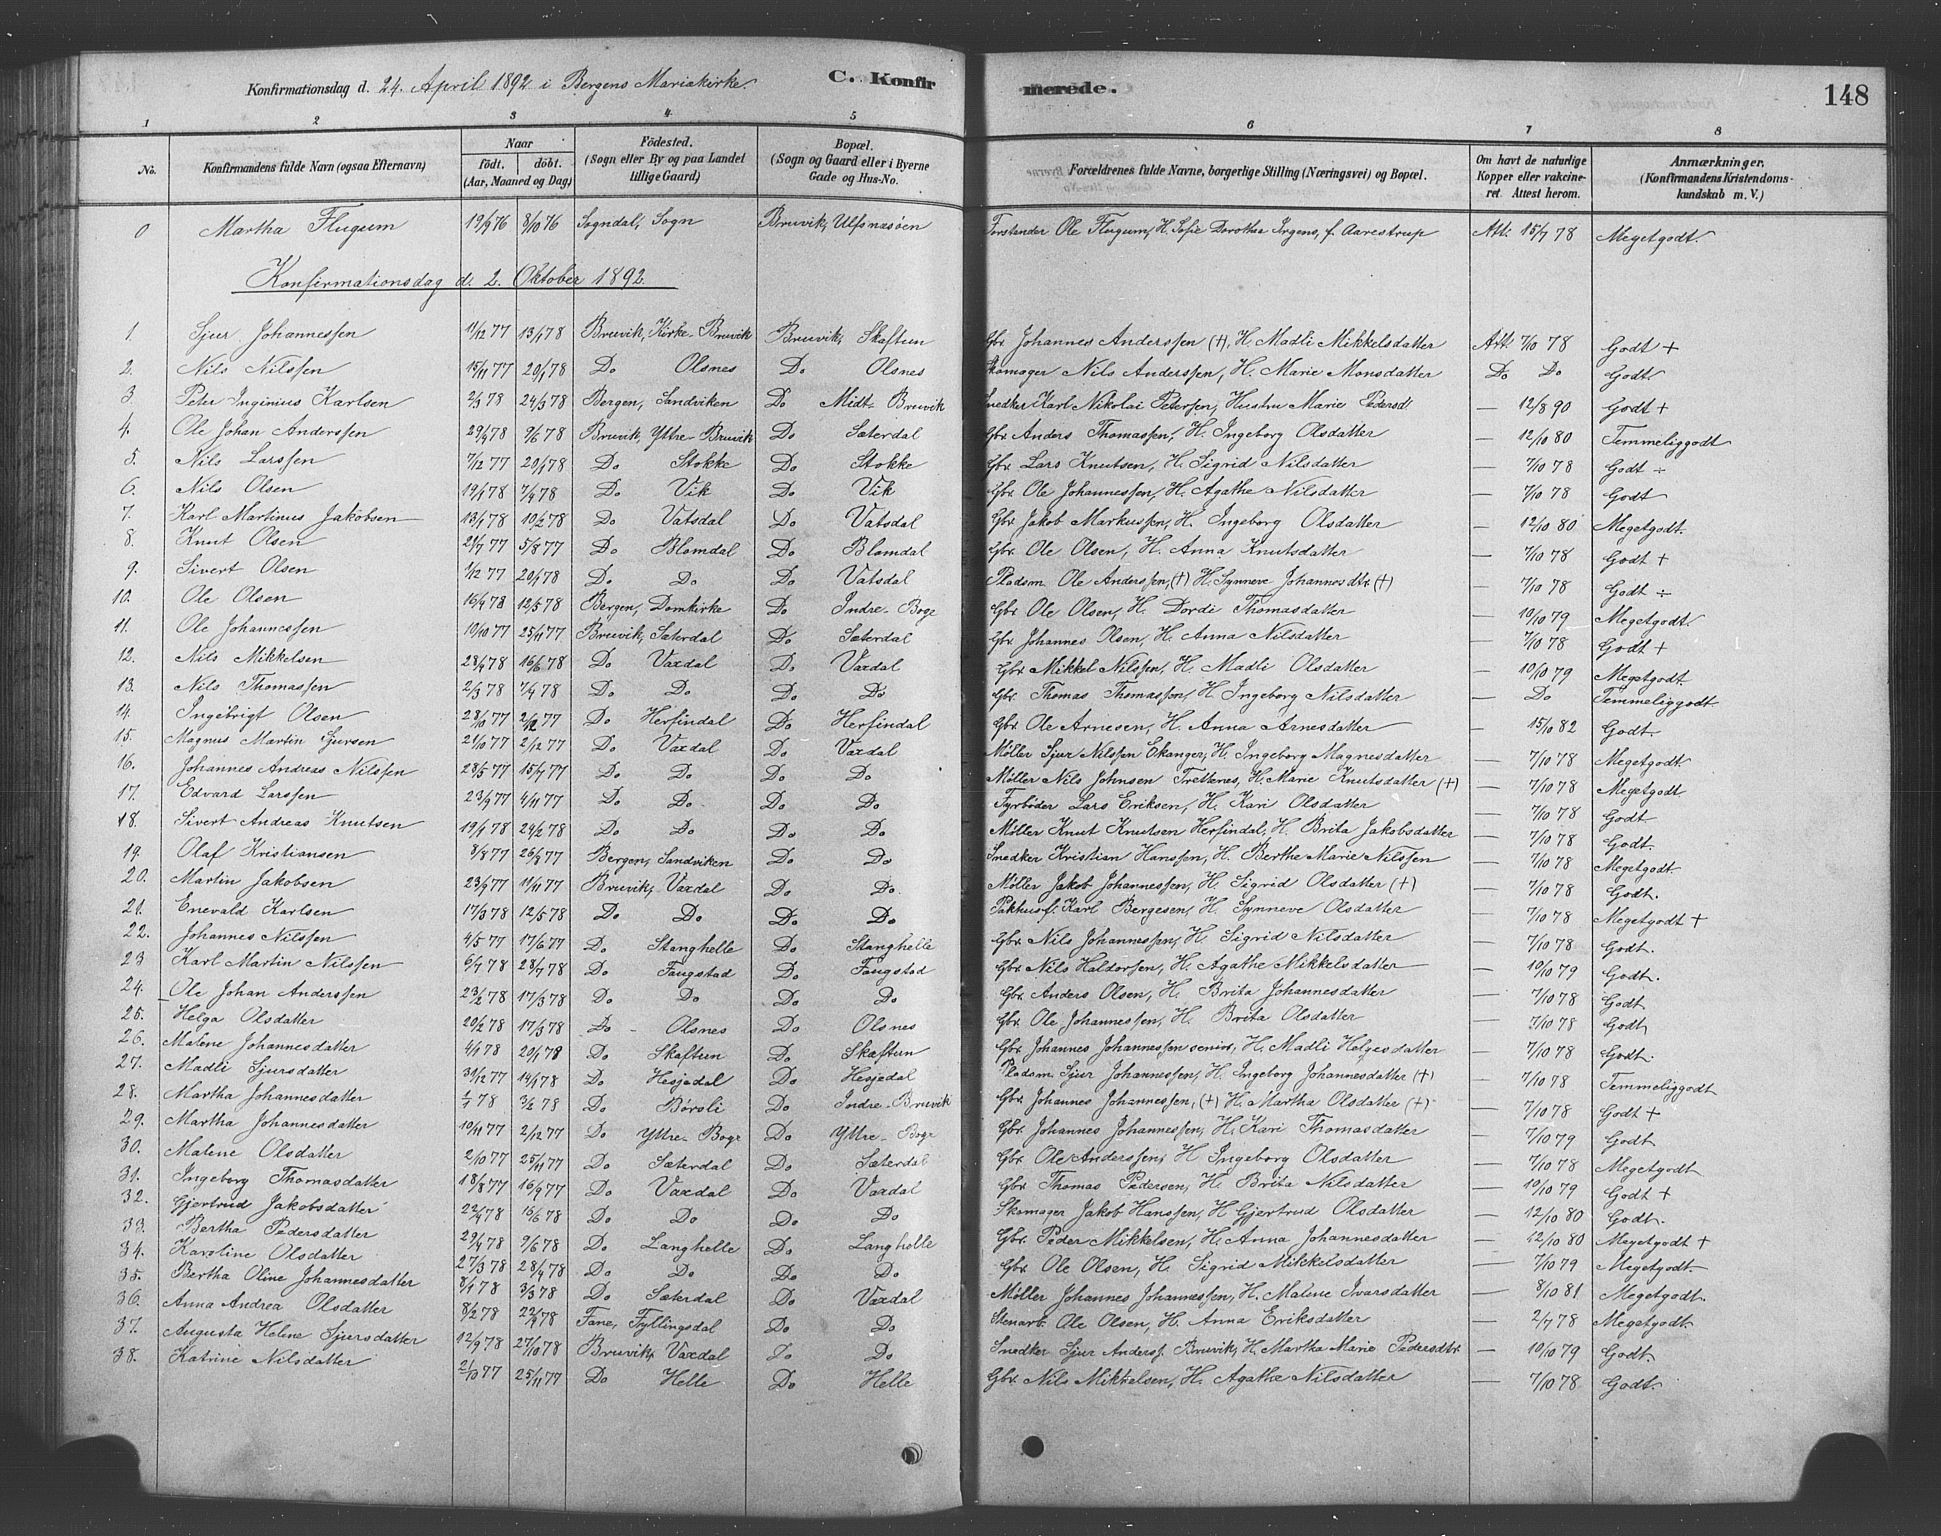 Konfirmationsdag d. 24. April 1892 i Bergens Mariakirke. C. Konfir merede. 148
1 2 3 4 5 6 7 8
No. Konfirmandens fulde Navn (ogsaa Efternavn) Naar født. døbt. (Aar, Maaned og Dag) Födested. (Sogn eller By og paa Landet tillige Gaard) Bopæl. (Sogn og Gaard eller i Byerne Gade og Hus-No. Forældrenes fulde Navne, borgerlige Stilling (Næringsvei) og Bopæl. Om havt de naturlige Kopper eller vakcineret. Attest herom. Anmærkninger. (Konfirmandens Kristendomskundskab m. V.)
0 Martha Flugum 19/9 76 8/10 76 Sogndal, Sogn Bruvik, Ulfsnæsøen Forstander Ole Flugum, H. Sofie Dorothea Irgens, f. Aarestrup Att. 15/7 78 Megetgodt.
Konfirmationsdag d. 2. Oktober 1892.
1. Sjur Johannessen 11/12 77 13/1 78 Bruvik, Kirke-Bruvik Bruvik, Skaftun Gbr. Johannes Anderssen (+), H. Madli Mikkelsdatter Att. 7/10 78 Godt +
2. Nils Nilssen 15/11 77 20/1 78 Do Olsnes Do Olsnes Skomager Nils Anderssen, H. Marie Monsdatter Do Do Godt
3. Peter Inginius Karlsen 2/3 78 24/3 78 Bergen, Sandviken Do Midt-Bruvik Snedker Karl Nikolai Petersen, Hustru Marie Pedersd — 12/8 90 Godt +
4. Ole Johan Anderssen 29/4 78 9/6 78 Bruvik, Yttre-Bruvik Do Sæterdal Gbr. Anders Thomassen, H. Ingeborg Olsdatter — 12/10 80 Temmeliggodt
5. Nils Larssen 7/12 77 20/1 78 Do Stokke Do Stokke Gbr. Lars Knutsen, H. Sigrid Nilsdatter — 7/10 78 Godt ÷
6. Nils Olsen 19/1 78 7/4 78 Do Vik Do Vik Gbr. Ole Johannessen, H. Agathe Nilsdatter — 7/10 78 Godt
7. Karl Martinus Jakobsen 13/1 78 10/2 78 Do Vatsdal Do Vatsdal Gbr. Jakob Markussen, H. Ingeborg Olsdatter — 12/10 80 Megetgodt.
8. Knut Olsen 21/7 77 5/8 77 Do Blomdal Do Blomdal Gbr. Ole Olsen, H. Anna Knutsdatter — 7/10 78 Godt +
9. Sivert Olsen 1/12 77 20/1 78 Do Do Do Vatsdal Pladsm. Ole Anderssen, (+) H. Synneve Johannesdtr (+) — 7/10 78 Godt ÷
10. Ole Olsen 16/4 78 12/5 78 Bergen, Domkirke Do Indre-Boge Gbr. Ole Olsen, H. Dordi Thomasdatter — 10/10 79 Megetgodt.
11. Ole Johannessen 10/10 77 25/11 77 Bruvik, Sæterdal Do Sæterdal Gbr. Johannes Olsen, H. Anna Nilsdatter — 7/10 78 Godt +
12. Nils Mikkelsen 28/4 78 16/6 78 Do Vaxdal Do Vaxdal Gbr. Mikkel Nilssen, H. Madli Olsdatter — 10/10 79 Megetgodt.
13. Nils Thomassen 2/3 78 7/4 78 Do Do Do Do Gbr. Thomas Thomassen, H. Ingeborg Nilsdatter — Do Temmeliggodt
14. Ingebrigt Olsen 28/10 77 2/12 77 Do Herfindal Do Herfindal Gbr. Ole Arnesen, H. Anna Arnesdatter — 15/10 82 Godt.
15. Magnus Martin Sjursen 21/10 77 2/12 77 Do Vaxdal Do Vaxdal Møller Sjur Nilssen Ekanger, H. Ingeborg Magnesdatter — 7/10 78 Megetgodt.
16. Johannes Andreas Nilssen 28/5 77 15/7 77 Do Do Do Do Møller Nils Johnsen Trettenes, H. Marie Knutsdatter (+) — 7/10 78 Megetgodt
17. Edvard Larssen 23/9 77 4/11 77 Do Do Do Do Fyrbøder Lars Eriksen, H. Kari Olsdatter — 7/10 78 Godt
18. Sivert Andreas Knutsen 19/1 78 24/2 78 Do Do Do Do Møller Knut Knutsen Herfindal, H. Brita Jakobsdatter — 7/10 78 Godt.
19. Olaf Kristiansen 8/8 77 26/9 77 Bergen, Sandviken Do Do Snedker Kristian Hanssen, H. Berthe Marie Nilssen — 7/10 78 Megetgodt
20. Martin Jakobsen 23/9 77 11/11 77 Bruvik, Vaxdal Do Do Møller Jakob Johannessen, H. Sigrid Olsdatter (+) — 7/10 78 Godt.
21. Enevald Karlsen 17/3 78 12/5 78 Do Do Do Do Pakhusf. Karl Bergesen, H. Synneve Olsdatter — 7/10 78 Megetgodt +
22. Johannes Nilssen 4/5 77 17/6 77 Do Stanghelle Do Stanghelle Gbr. Nils Johannessen, H. Sigrid Nilsdatter — 7/10 78 Godt.
23 Karl Martin Nilssen 6/7 78 28/7 78 Do Fangstad Do Faugstad Gbr. Nils Haldorsen, H. Agathe Mikkelsdatter — 10/10 79 Godt.
24. Ole Johan Anderssen 23/2 78 17/3 78 Do Do Do Do Gbr. Anders Olsen, H. Brita Johannesdatter — 7/10 78 Godt
25. Helga Olsdatter 20/2 78 17/3 78 Do Olsnes Do Olsnes Gbr. Ole Johannessen, H. Brita Olsdatter — 7/10 78 Godt
26. Malene Johannesdatter 4/1 78 20/1 78 Do Skaftun Do Skaftun Gbr. Johannes Johannessen senior, H. Madli Helgesdatter — 7/10 78 Godt.
27. Madli Sjursdatter 31/12 77 14/1 78 Do Hesjedal Do Hesjedal Pladsm. Sjur Johannessen, H. Ingeborg Johannesdatter (+) — 7/10 78 Temmeliggodt
28. Martha Johannesdatter 1/1 78 3/2 78 Do Børsli Do Indre-Bruvik Gbr. Johannes Johannessen, (+) H. Martha Olsdatter (+) — 7/10 78 Godt +
29. Martha Johannesdatter 10/11 77 2/12 77 Do Yttre-Boge Do Yttre-Boge Gbr. Johannes Johannessen, H. Kari Thomasdatter — 7/10 79 Godt
30. Malene Olsdatter 2/10 77 25/11 77 Do Sæterdal Do Sæterdal Gbr. Ole Anderssen, H Ingeborg Olsdatter — 7/10 78 Megetgodt
31. Ingeborg Thomasdatter 18/8 77 16/9 77 Do Vaxdal Do Vaxdal Gbr. Thomas Pedersen, H. Brita Nilsdatter — 10/10 79 Godt +
32. Gjertrud Jakobsdatter 22/4 78 16/6 78 Do Do Do Do Skomager Jakob Hanssen, H Gjertrud Olsdatter — 12/10 80 Godt.
33. Bertha Pedersdatter 29/4 78 9/6 78 Do Langhelle Do Langhelle Gbr. Peder Mikkelsen, H. Anna Johannesdatter — 12/10 80 Megetgodt +
34. Karoline Olsdatter 27/3 78 28/4 78 Do Do Do Do Gbr. Ole Olsen, H. Sigrid Mikkelsdatter — 7/10 79 Megetgodt.
35. Bertha Oline Johannesdatter 8/1 78 3/3 78 Do Sæterdal Do Vaxdal Møller Johannes Johannessen, H. Malene Ivarsdatter — 8/10 81 Megetgodt.
36. Anna Andrea Olsdatter 8/2 78 22/4 78 Fane, Fyllingsdal Do Do Stenarb. Ole Olsen, H. Anna Eriksdatter — 2/7 78 Megetgodt.
37. Augusta Helene Sjursdatter 12/9 78 27/10 78 Bruvik, Vaxdal Do Do Snedker Sjur Anderss. Bruvik, H. Martha Marie Pedersdtr — 10/10 79 Godt.
38. Katrine Nilsdatter 2/10 77 25/11 77 Do Helle Do Helle Gbr. Nils Mikkelsen, H. Agathe Nilsdatter — 7/10 78 Godt.